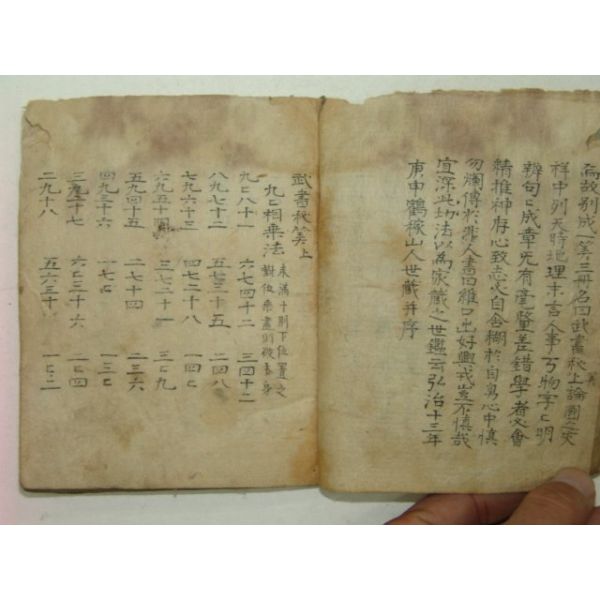 為故別成一笑三冊名曰武書秋上論圖之灾
祥中列天時地理末言人事万物字〻明
辨句〻成章尤有毫釐差錯學者必會
精推神存心致志必自含糊於自身心中慎
勿爛傳於非人書曰維口出好興戎豈不慎哉
宜深此幼法以為家藏之世鑑云弘治十三年
庚申鶴稼山人世藏并序
武書秋笑上
九〻相乘法 未滿十則下位置之
對位乘盡則破本身
九〻八十一 六七四十二 三四十二
八九七十二 五七三十五 二四八
七九六十三 四七二十八 一四〻
六九五十四 三七二十一 三〻九
五九四十五 二七十四 二三六
四九三十六 一七〻 一三〻
三九二十七 六〻三十六 二〻四
二九十八 五六三十 一〻二